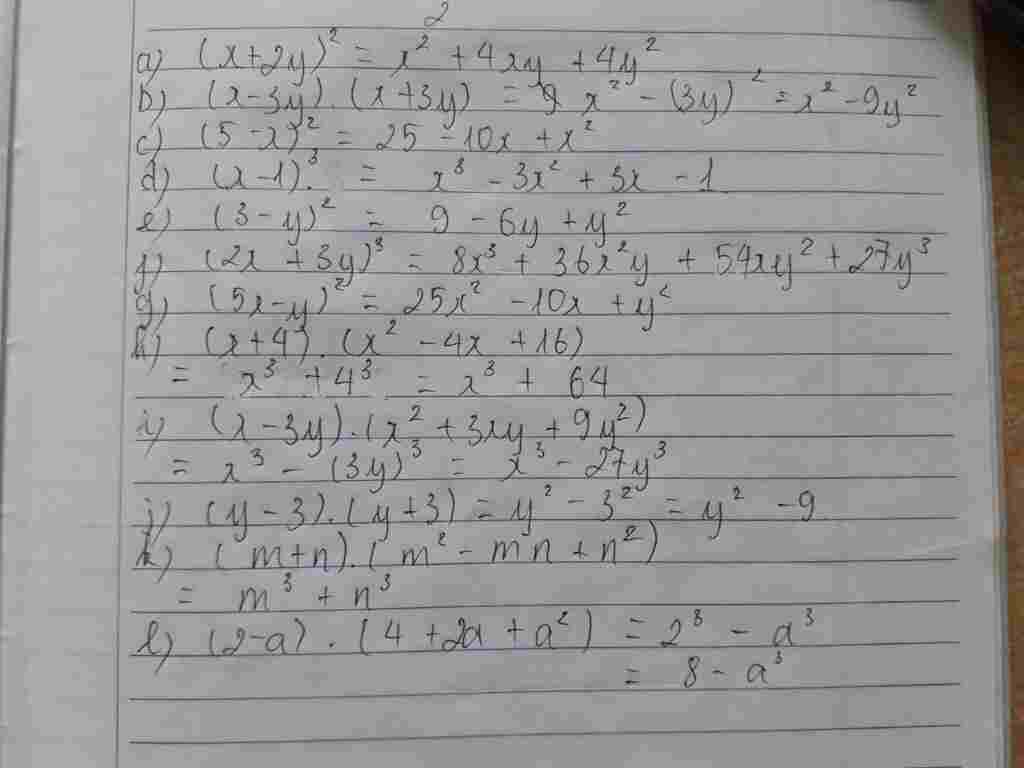 2
a) (x+2y)² = x² + 4xy + 4y²
b) (x-3y).(x+3y) = 9 x² - (3y)² = x² - 9y²
c) (5-x)² = 25 - 10x + x²
d) (x-1)³ = x³ - 3x² + 3x - 1
e) (3-y)² = 9 - 6y + y²
f) (2x + 3y)³ = 8x³ + 36x²y + 54xy² + 27y³
g) (5x-y)² = 25x² - 10x + y²
h) (x+4).(x² - 4x + 16)
= x³ + 4³ = x³ + 64
i) (x-3y).(x² + 3xy + 9y²)
= x³ - (3y)³ = x³ - 27y³
j) (y-3).(y+3) = y² - 3² = y² - 9
k) (m+n).(m² - mn + n²)
= m³ + n³
l) (2-a).(4 + 2a + a²) = 2³ - a³
= 8 - a³